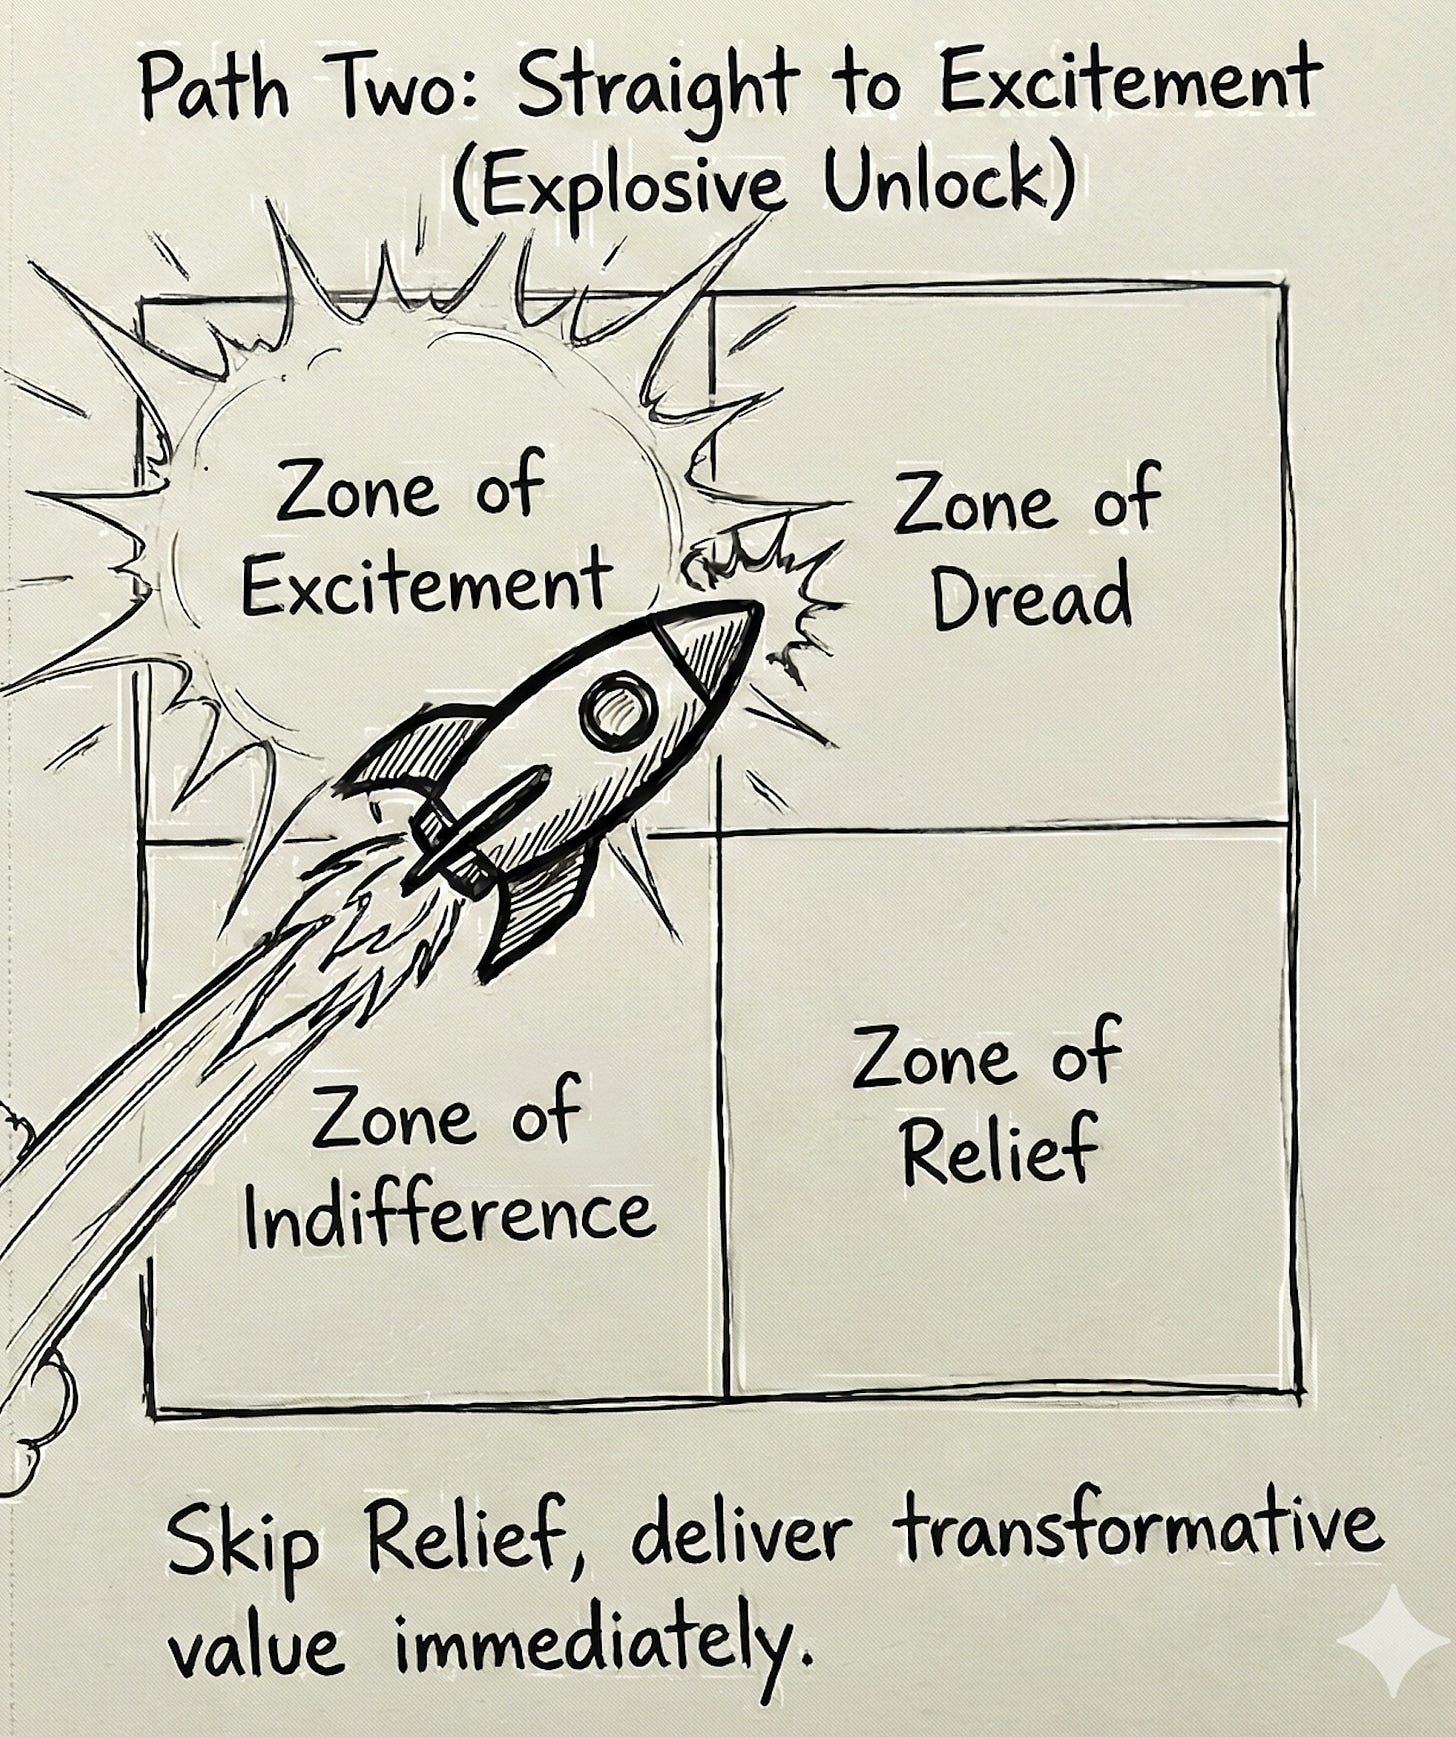 Path Two: Straight to Excitement
(Explosive Unlock)
Zone of
Excitement
Zone of
Dread
Zone of
Indifference
Zone of
Relief
Skip Relief, deliver transformative
value immediately.